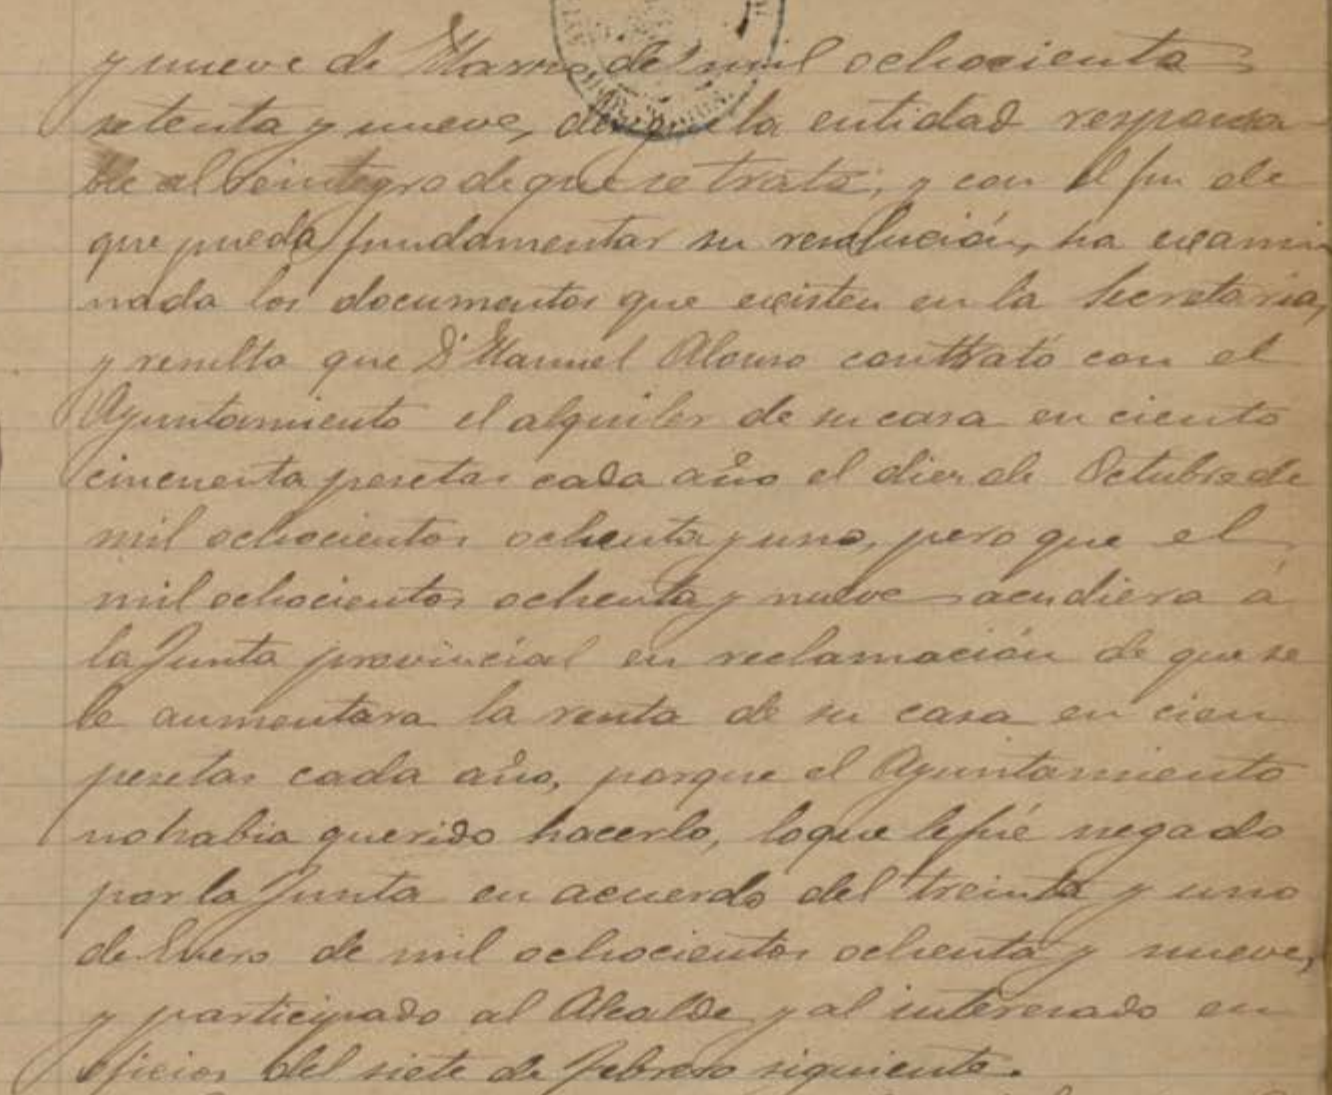 y nueve de Marzo de mil ochocientos
setenta y nueve, de que la entidad responsa
ble al reintegro de que se trata; y con el fin de
que pueda fundamentar su resolución, ha exami
nado los documentos que existen en la Secretaria,
y resulta que Dn Manuel Alonso contrató con el
Ayuntamiento el alquiler de su casa en ciento
cincuenta pesetas cada año el diez de Octubre de
mil ochocientos ochenta y uno, pero que el
mil ochocientos ochenta y nueve acudiera á
la Junta provincial en reclamación de que se
le aumentara la renta de su casa en cien
pesetas cada año, porque el Ayuntamiento
no habia querido hacerlo, lo que le fué negado
por la Junta en acuerdo del treinta y uno
de Enero de mil ochocientos ochenta y nueve,
y participado al Alcalde y al interesado en
oficios del siete de febrero siguiente.